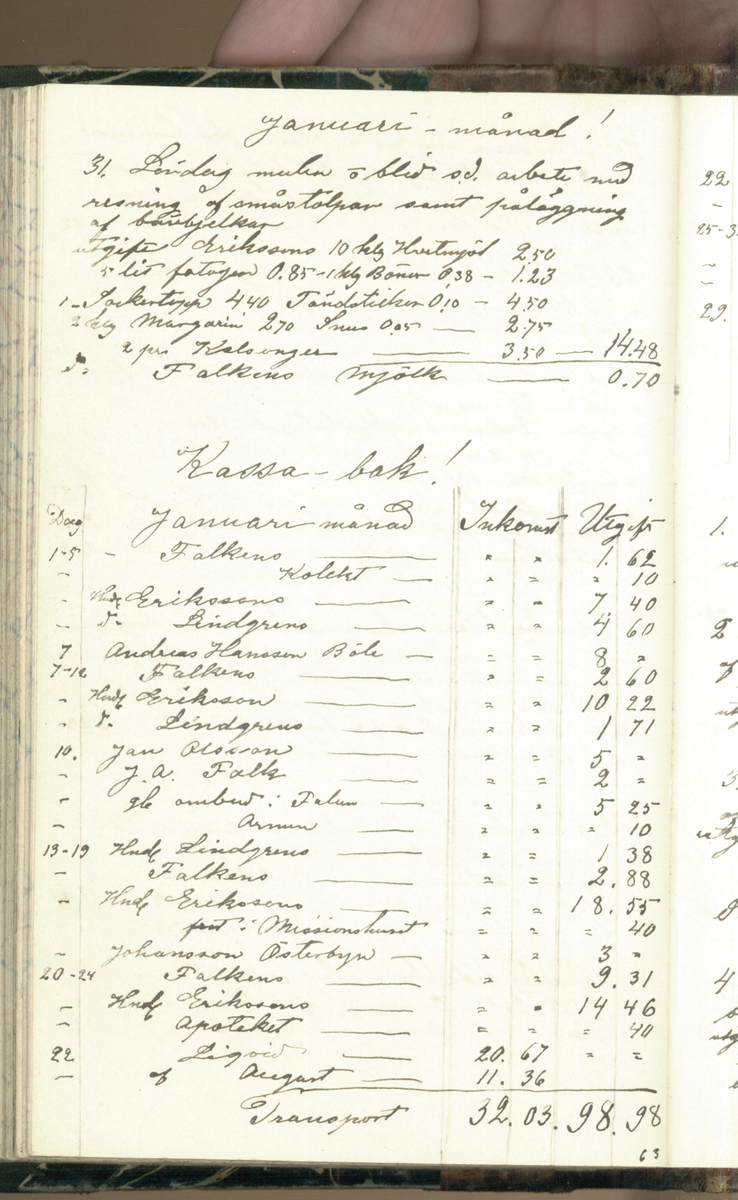 Januari - månad!
31. Lördag mulen o blid s.d. arbete med
resning af småstolpar samt påläggning
af bärbjelkar
utgift Erikssons 10 klg Hvetmjöl 2.50
5 lit fotogen 0.85 - 1 klg Bönor 0,38 - 1.23
1 - Sockertopp 4 40 Tändstickor 0,10 - 4,50
2 klg Margarin 2 70 Snus 0.05 — 2.75
2 par Kalsonger — 3.50 — 14.48
d. Falkens Mjölk — 0.70
Kassa - bok!
Dag Januari månad Inkomst Utgift
1-5 - Falkens — " " 1. 62
- Kolekt — " " " 10
- Hndl Erikssons — " " 7 40
- d. Lindgrens — " " 4 60
7 Andreas Hansson Böle — " " 8 "
7-12 Falkens — " " 2 60
- Hndl Eriksson — " " 10 22
- d. Lindgrens — " " 1 71
10. Jan Olsson — " " 5 "
- J. A. Falk — " " 2 "
- ombud i Falun — " " 5 25
- — " " " 10
13-19 Hndl Lindgrens — " " 1 38
- Falkens — " " 2. 88
- Hndl Erikssons — " " 18. 55
i Missionshuset " " " 40
- Johansson Österbyn — " " 3 "
20-24 Falkens — " " 9. 31
- Hndl Erikssons — " " 14 46
- Apoteket — " " " 40
22 Liqvid — 20. 67 " "
- af August — 11. 36
Transport 32. 03. 98. 98
63
22
-
25-3
-
-
29.
1.
2
3.
4